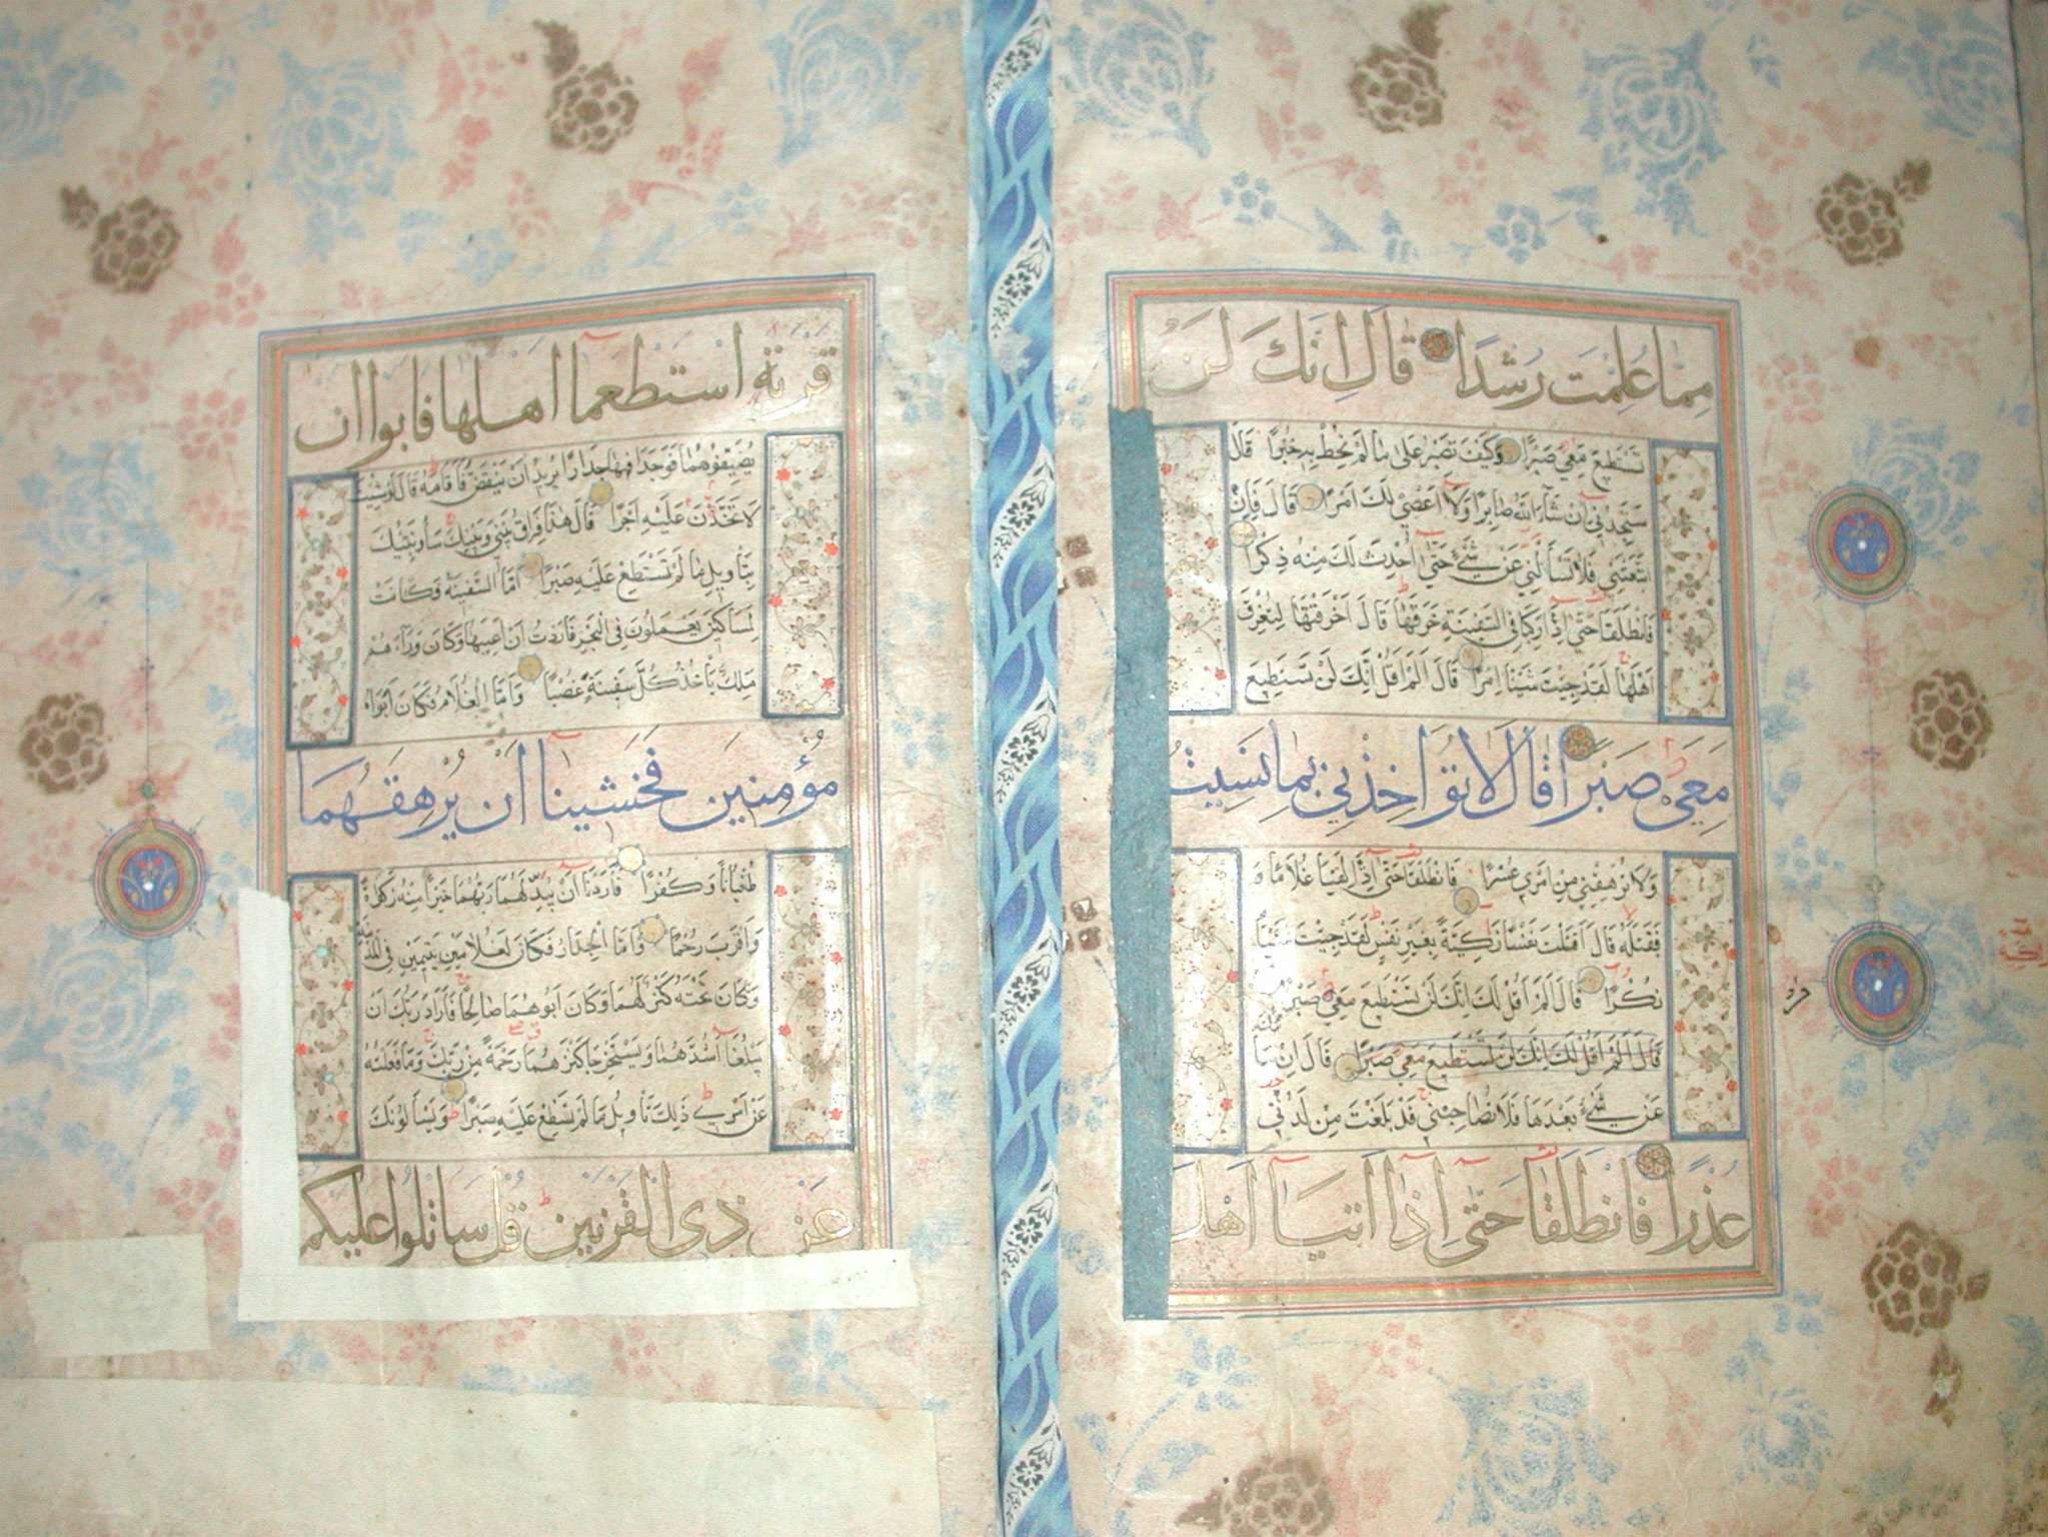 مما علمت رشدا قال انك لن
تستطيع معي صبرا وكيف تصبر على ما لم تحط به خبرا قال
ستجدني ان شاء الله صابرا ولا اعصي لك امرا قال فان
اتبعتني فلا تسألني عن شيء حتى احدث لك منه ذكرا
فانطلقا حتى اذا ركبا في السفينة خرقها قال اخرقتها لتغرق
اهلها لقد جئت شيئا امرا قال الم اقل انك لن تستطيع
معي صبرا قال لا تؤاخذني بما نسيت
ولا ترهقني من امري عسرا فانطلقا حتى اذا لقيا غلاما و
فقتله قال اقتلت نفسا زكية بغير نفس لقد جئت شيئا
نكرا قال الم اقل لك انك لن تستطيع معي صبرا
قال الم اقل لك انك لن تستطيع معي صبرا قال ان سا
عن شيء بعدها فلا تصاحبني قد بلغت من لدني
عذرا فانطلقا حتى اذا اتيا اهل
قرية استطعما اهلها فابوا ان
يضيفوهما فوجدا فيها جدارا يريد ان ينقض فاقامه قال لو شئت
لاتخذت عليه اجرا قال هذا فراق بيني وبينك سأنبئك
بتأويل ما لم تستطع عليه صبرا اما السفينة فكانت
لمساكين يعملون في البحر فاردت ان اعيبها وكان وراءهم
ملك يأخذ كل سفينة غصبا واما الغلام فكان ابواه
مؤمنين فخشينا ان يرهقهما
طغيانا وكفرا فاردنا ان يبدلهما ربهما خيرا منه زكوة
واقرب رحما واما الجدار فكان لغلامين يتيمين في المدينة
وكان تحته كنز لهما وكان ابوهما صالحا فاراد ربك ان
يبلغا اشدهما ويستخرجا كنزهما رحمة من ربك وما فعلته
عن امري ذلك تأويل ما لم تسطع عليه صبرا ويسألونك
عن ذي القرنين قل ساتلوا عليكم